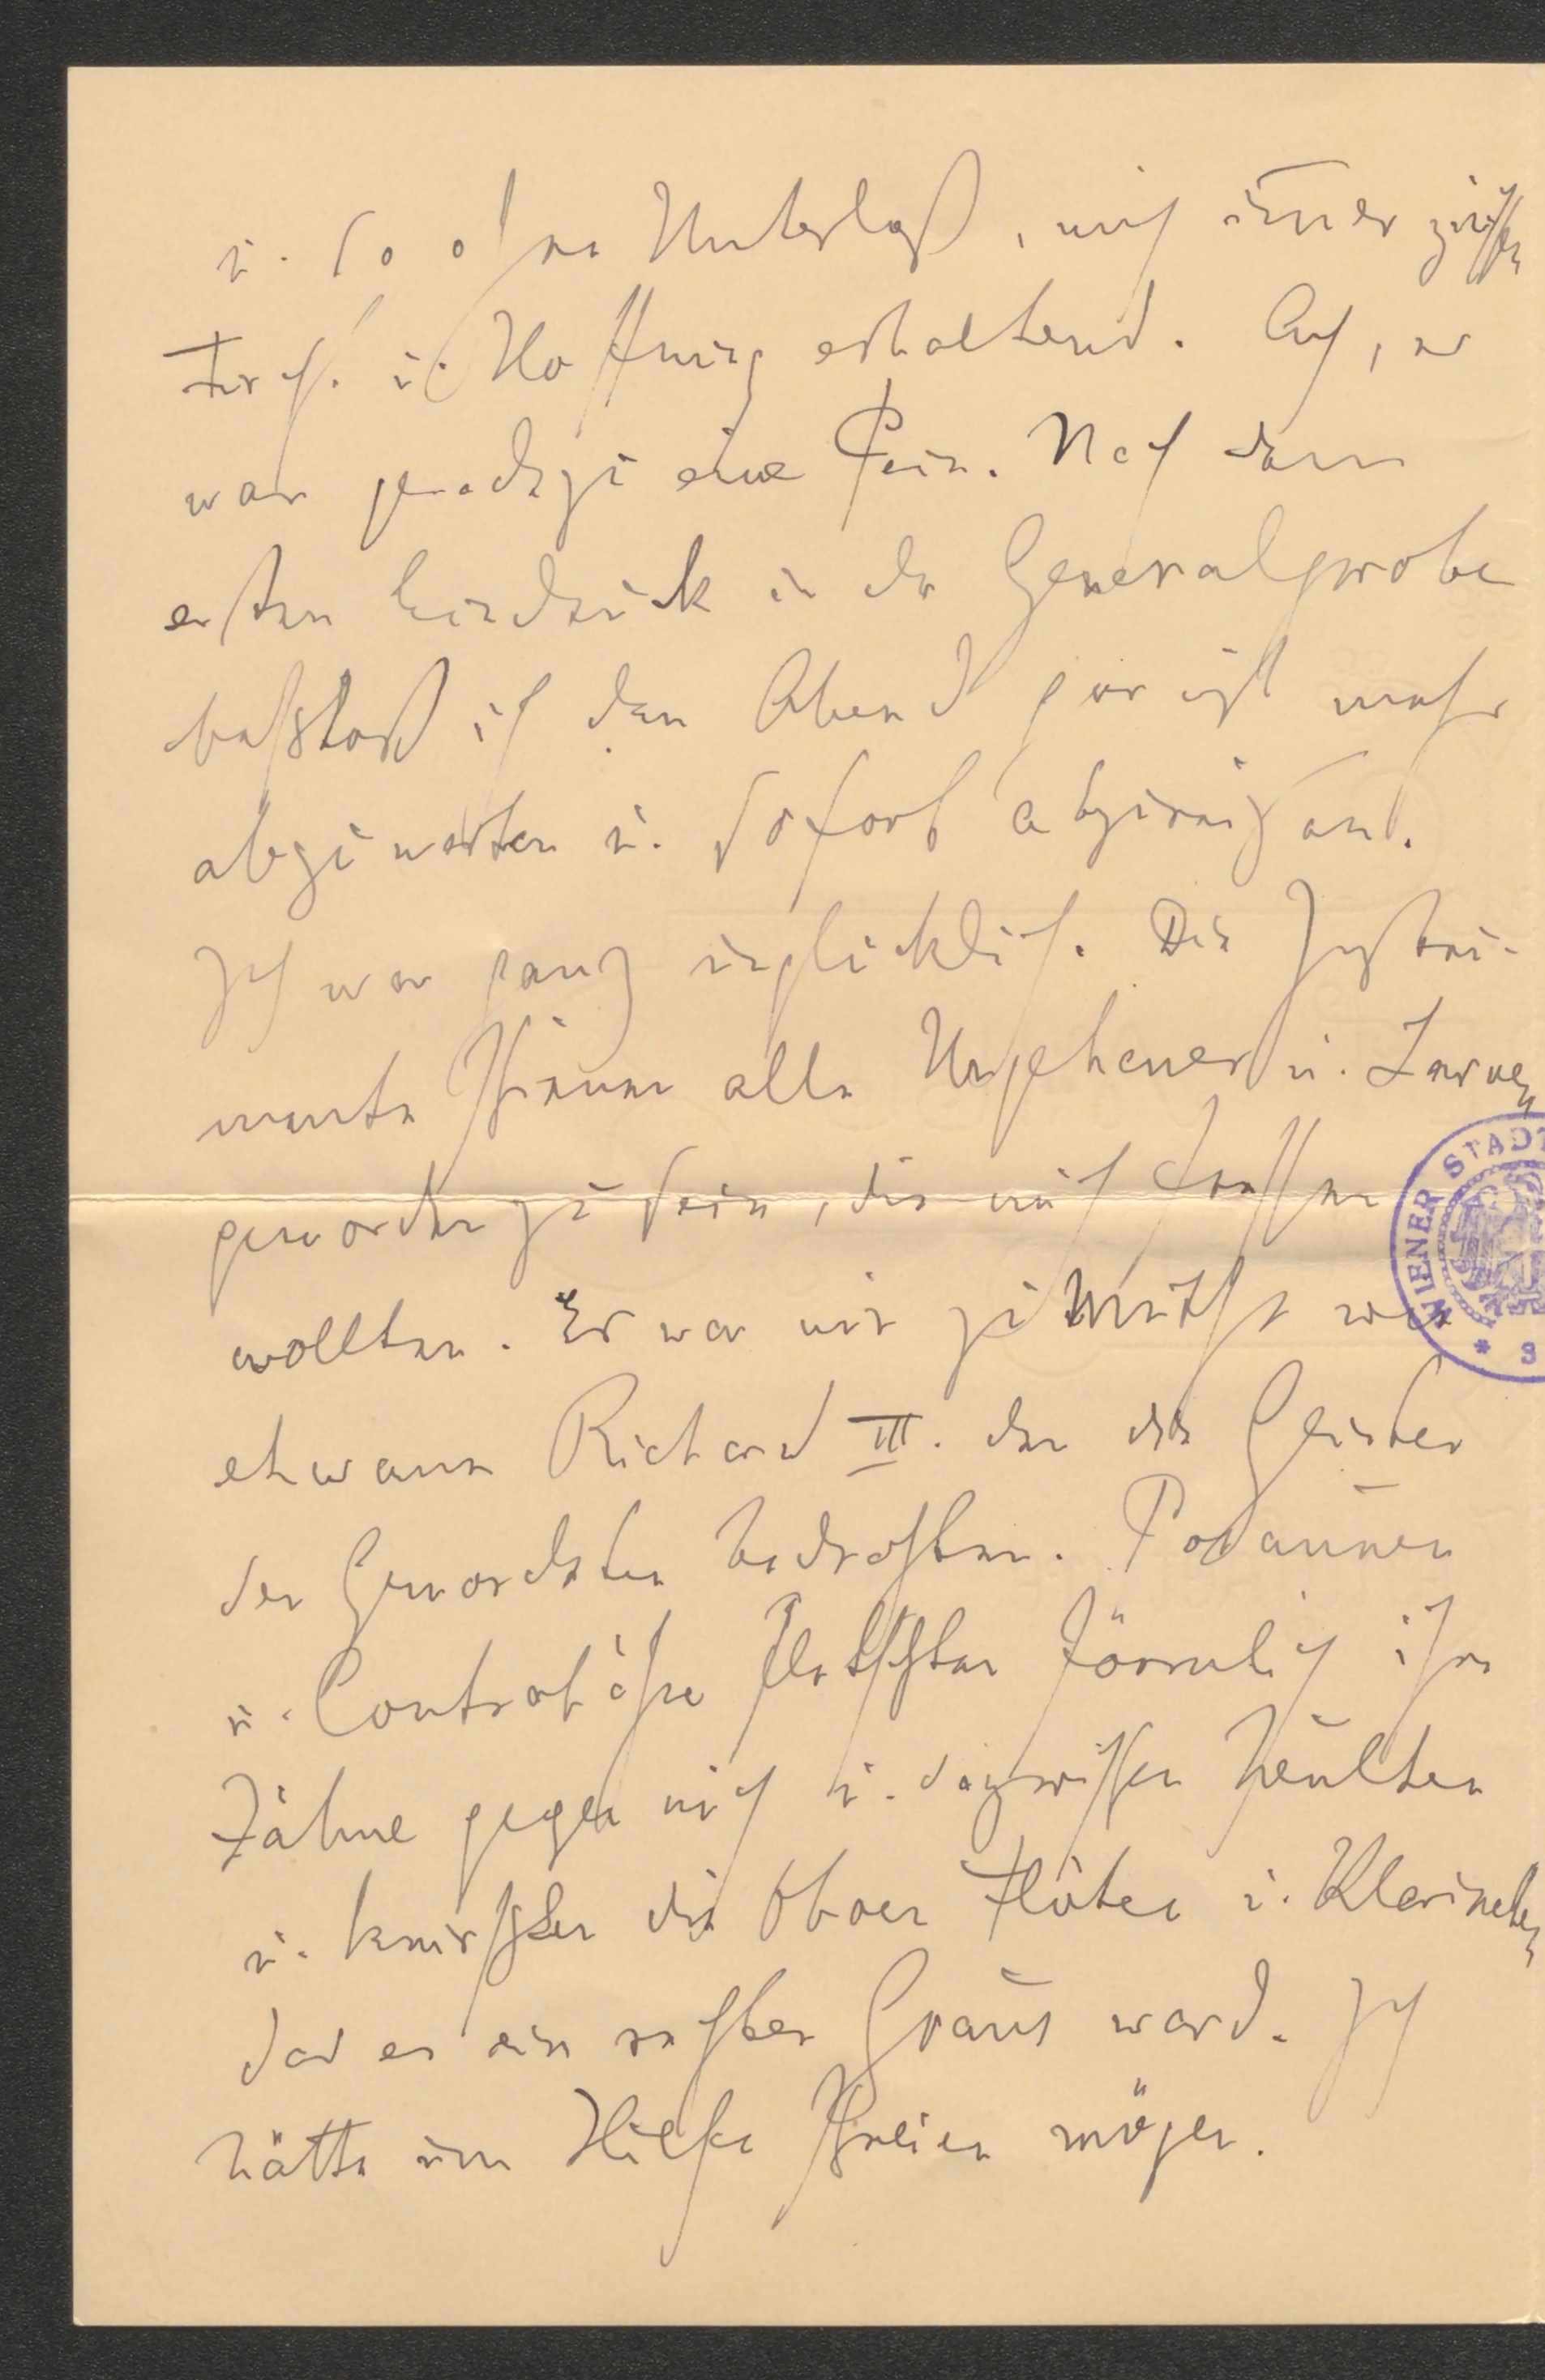 u. so ohne Unterlaß, mich immer zwischen
Furcht u. Hoffnung erhaltend. Ach, es
war geradezu eine Pein. Nach dem
ersten Eindruck in der Generalprobe
beschloß ich den Abend gar nicht mehr
abzuwarten u. sofort abzureisen.
Ich war ganz unglücklich. Die Instru-
mente schienen alle Ungeheuer u. Larven
geworden zu sein, die mich fressen
wollten. Es war mir zu Muthe wie
etwann Richard III. den die Geister
der Gemordeten bedrohten. Posaunen
u. Contrabässe fletschten förmlich ihre
Zähne gegen mich u. dazwischen heulten
u. knirschten die Oboen Flöten u. Klarineten
das es ein rechter Graus ward. Ich
hätte um Hilfe schreien mögen.
WIENER STADT